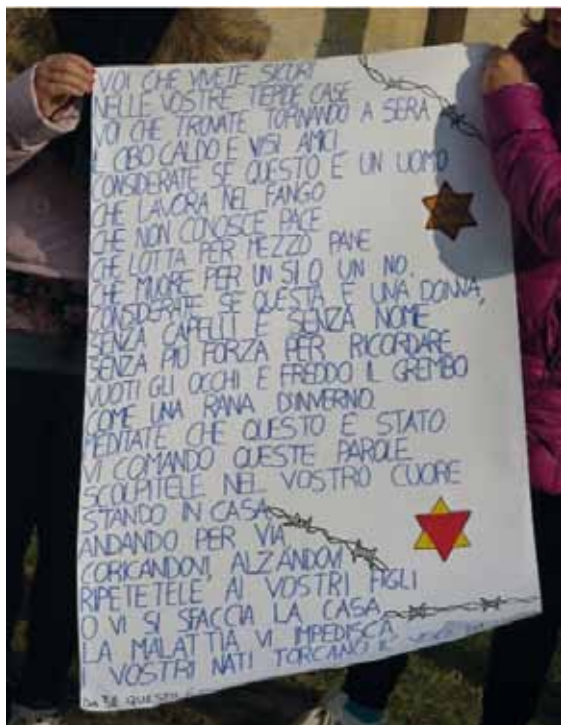 VOI CHE VIVETE SICURI
NELLE VOSTRE TEPIDE CASE
VOI CHE TROVATE TORNANDO A SERA
IL CIBO CALDO E VISI AMICI
CONSIDERATE SE QUESTO E' UN UOMO
CHE LAVORA NEL FANGO
CHE NON CONOSCE PACE
CHE LOTTA PER MEZZO PANE
CHE MUORE PER UN SI O UN NO.
CONSIDERATE SE QUESTA E' UNA DONNA,
SENZA CAPELLI E SENZA NOME
SENZA PIÙ FORZA PER RICORDARE
VUOTI GLI OCCHI E FREDDO IL GREMBO
COME UNA RANA D'INVERNO.
MEDITATE CHE QUESTO E' STATO
VI COMANDO QUESTE PAROLE
SCOLPITELE NEL VOSTRO CUORE
STANDO IN CASA
ANDANDO PER VIA,
CORICANDOVI, ALZANDOVI
RIPETETELE AI VOSTRI FIGLI
O VI SI SFACCIA LA CASA,
LA MALATTIA VI IMPEDISCA
I VOSTRI NATI TORCANO IL
DA SE QUESTO